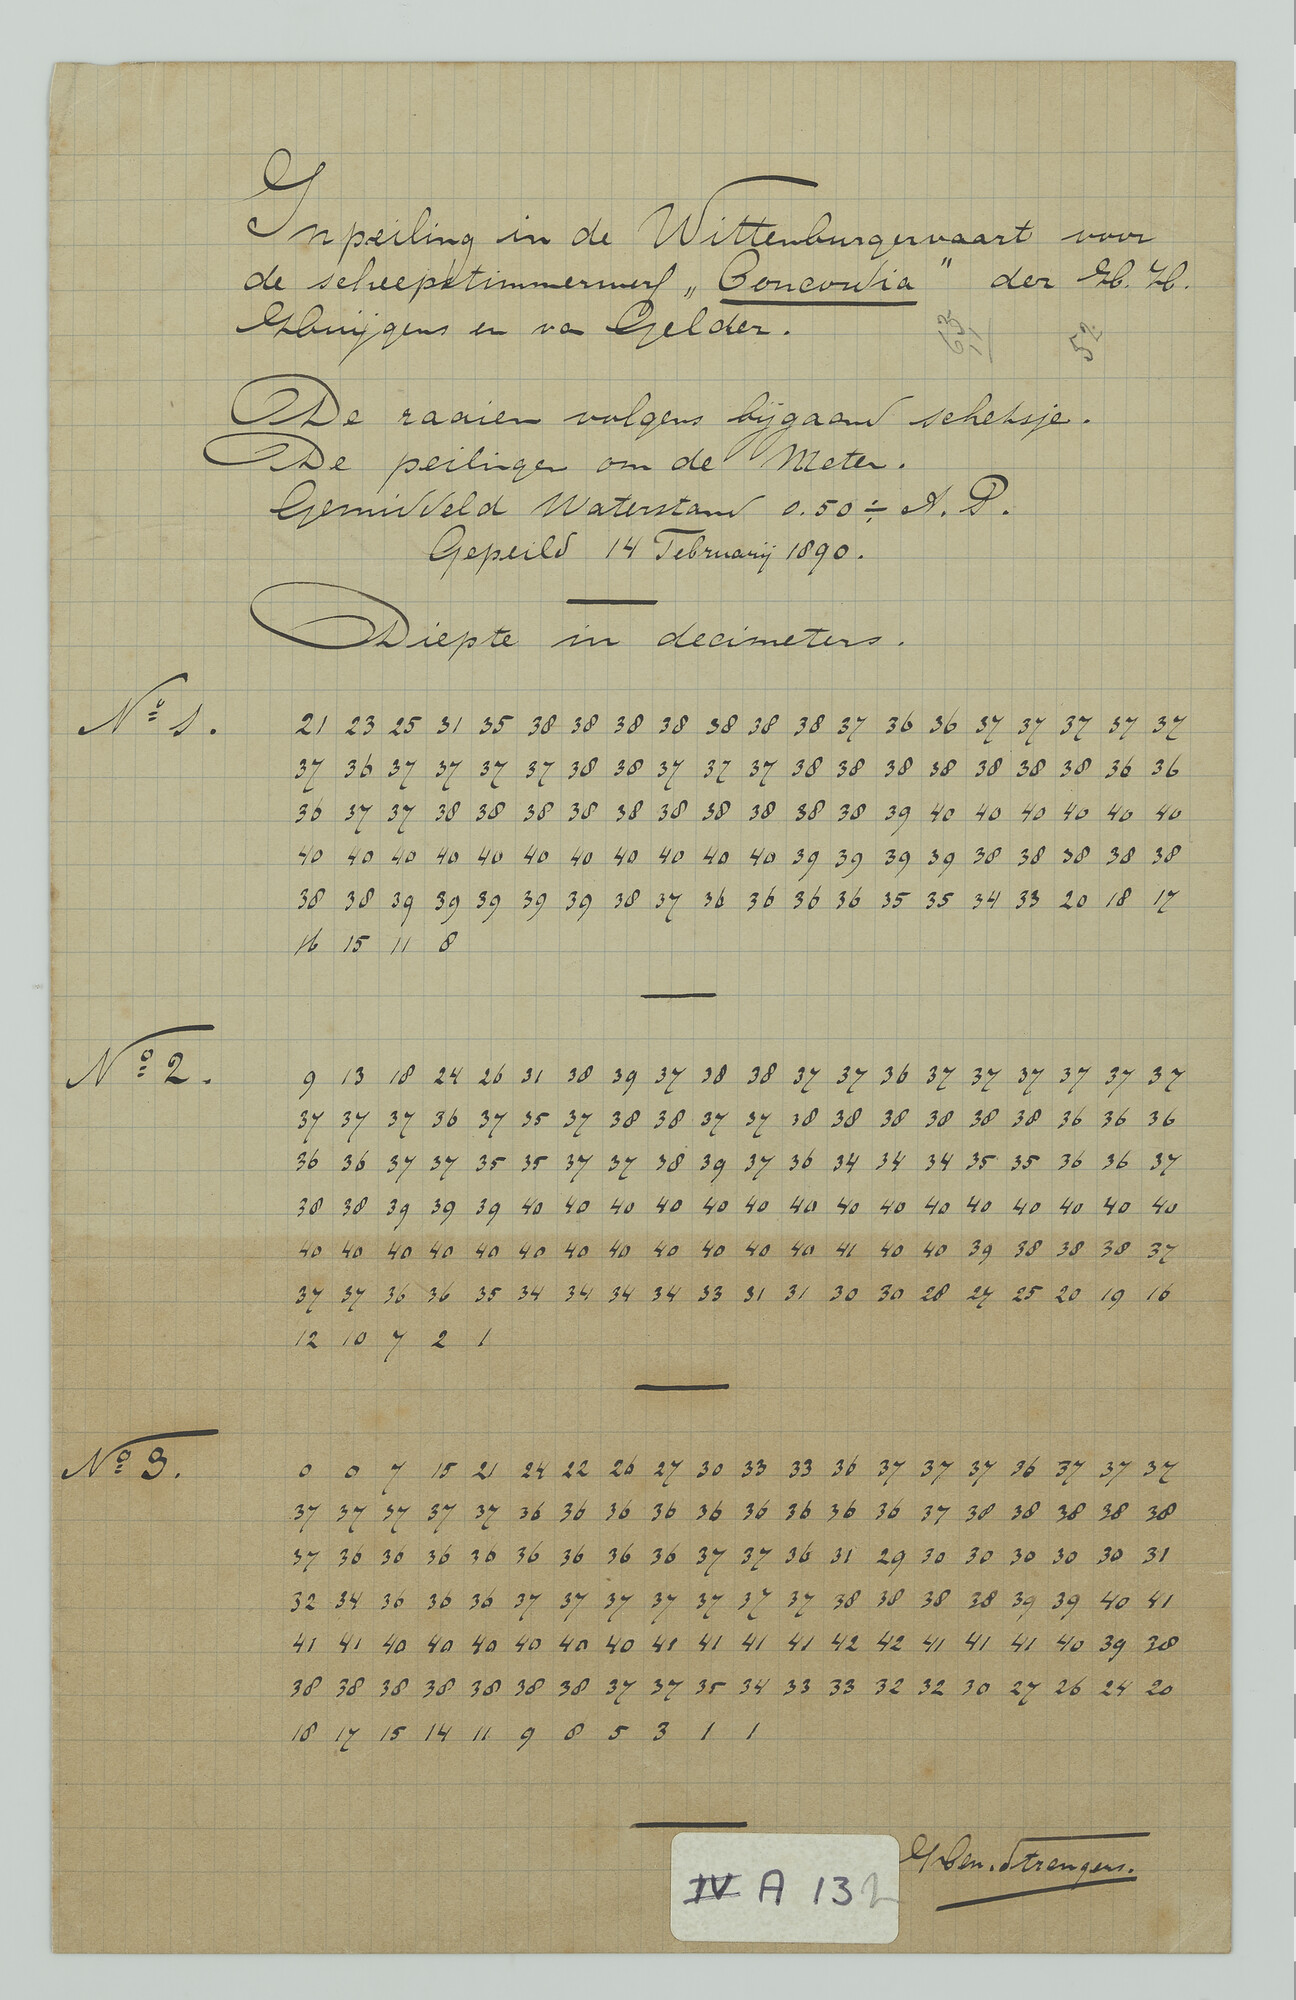 Inpeiling in de Wittenburgervaart voor
de scheepstimmerwerf „Concordia" der H. H.
Huijgens en va Gelder.
63
11
52
De raaien volgens bijgaand schetsje.
De peilingen om de Meter.
Gemiddeld Waterstand 0.50 ÷ A. P.
Gepeild 14 Februarij 1890.
Diepte in decimeters.
No 1. 21 23 25 31 35 38 38 38 38 38 38 38 37 36 36 37 37 37 37 37
37 36 37 37 37 37 38 38 37 37 37 38 38 38 38 38 38 38 36 36
36 37 37 38 38 38 38 38 38 38 38 38 38 39 40 40 40 40 40 40
40 40 40 40 40 40 40 40 40 40 40 39 39 39 39 38 38 38 38 38
38 38 39 39 39 39 39 38 37 36 36 36 36 35 35 34 33 20 18 17
16 15 11 8
No 2. 9 13 18 24 26 31 38 39 37 38 38 37 37 36 37 37 37 37 37 37
37 37 37 36 37 35 37 38 38 37 37 38 38 38 38 38 38 36 36 36
36 36 37 37 35 35 37 37 38 39 37 36 34 34 34 35 35 36 36 37
38 38 39 39 39 40 40 40 40 40 40 40 40 40 40 40 40 40 40 40
40 40 40 40 40 40 40 40 40 40 40 40 41 40 40 39 38 38 38 37
37 37 36 36 35 34 34 34 34 33 31 31 30 30 28 27 25 20 19 16
12 10 7 2 1
No 3. 0 0 7 15 21 24 22 26 27 30 33 33 36 37 37 37 36 37 37 37
37 37 37 37 37 36 36 36 36 36 36 36 36 36 37 38 38 38 38 38
37 36 36 36 36 36 36 36 36 37 37 36 31 29 30 30 30 30 30 31
32 34 36 36 36 37 37 37 37 37 37 37 38 38 38 38 39 39 40 41
41 41 40 40 40 40 40 40 41 41 41 41 42 42 41 41 41 40 39 38
38 38 38 38 38 38 38 37 37 35 34 33 33 32 32 30 27 26 24 20
18 17 15 14 11 9 8 5 3 1 1
IV A 132